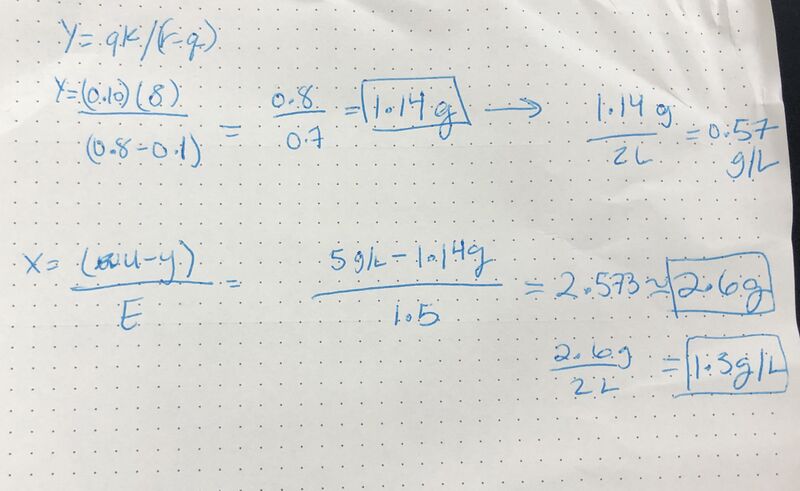 Y = qK/(r-q)
Y = (0.10)(8) / (0.8 - 0.1) = 0.8 / 0.7 = 1.14 g → 1.14 g / 2L = 0.57 g/L
X = (u - y) / E = 5 g/L - 1.14g / 1.5 = 2.573 ≈ 2.6g
2.6g / 2L = 1.3g/L